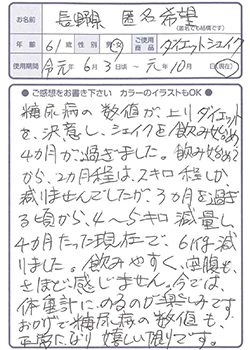 お名前 長野県 匿名希望
(匿名でも結構です)
年齢 61歳 性別 男・女 ご使用商品 ダイエットシェイク
使用期間 令和元年6月3日頃～元年10月 日(現在)
●ご感想をお書き下さい カラーのイラストもOK●
糖尿病の数値が上りダイエット
を決意し、シェイクを飲み始め
4カ月が過ぎました。飲み始めて
から、2カ月程は、2キロ程しか
減りませんでしたが、3カ月を過ぎ
る頃から、4～5キロ減量し
4カ月たった現在で、6kg減
りました。飲みやすく、空腹も、
さほど感じません。今では、
体重計にのるのが楽しみです
おかげで糖尿病の数値も、
正常になり嬉しい限りです。